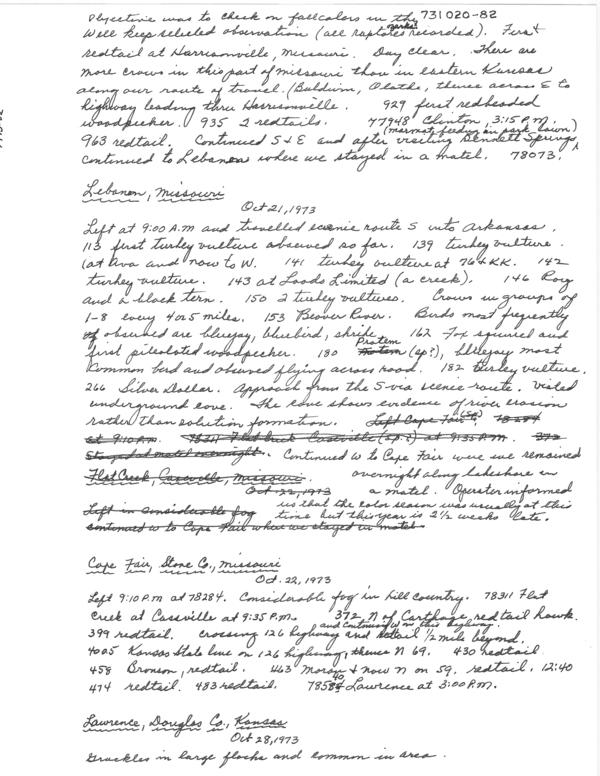 Objective was to check on fall colors in the Ozarks. 731020-82
Will keep selected observation (all raptors recorded). First
redtail at Harrisonville, Missouri. Day clear. There are
more crows in this part of Missouri than in eastern Kansas
along our route of travel. (Baldwin, Olathe, thence across E to
highway leading thru Harrisonville. 929 first redheaded
woodpecker. 935 2 redtails. 77948 Clinton, 3:15 P.M.
963 redtail. Continued S & E and after visiting Bennett Springs (marmots feeding on park lawn)
continued to Lebanon where we stayed in a motel. 78073.
Lebanon, Missouri
Oct 21, 1973
Left at 9:00 A.M and travelled scenic route S into Arkansas.
113 first turkey vulture observed so far. 139 turkey vulture.
(at Ava and now to W. 141 turkey vulture at 76 & KK. 142
turkey vulture. 143 at Loads Limited (a creek). 146 Roy
and a black tern. 150 2 turkey vultures. Crows in groups of
1-8 every 4 or 5 miles. 153 Beaver River. Birds most frequently
observed are bluejay, bluebird, shrike. 162 Fox squirrel and
first pileolated woodpecker. 180 Protem (sp?), bluejay most
common bird and observed flying across road. 182 turkey vulture.
266 Silver Dollar. Approach from the S via scenic route. Visited
underground cave. The cave shows evidence of river erosion
rather than solution formation. Left Cape Fair (Sp) 78284
at 9:10 A.M. 78311 Flat Creek Cassville (sp.?) at 9:35 A.M. 372
Stayed at motel overnight. Continued W to Cape Fair were we remained
Flat Creek, Cassville, Missouri. overnight along lakeshore in
Oct 22, 1973 a motel. Operator informed
Left in considerable fog us that the color season was usually at this
continued w to Cape Fair where we stayed in motel time but this year is 2 1/2 weeks late.
Cape Fair, Stone Co., Missouri
Oct. 22, 1973
Left 9:10 P.m at 78284. Considerable fog in hill country. 78311 Flat
Creek at Cassville at 9:35 P.m. 372 N of Carthage redtail hawk.
399 redtail. crossing 126 highway and continuing W on this highway. redtail 1/2 mile beyond.
4005 Kansas State line on 126 highway, thence N 69. 430 redtail
458 Bronson, redtail. 463 Moran & now N on 59. redtail. 12:40
474 redtail. 483 redtail. 78540 Lawrence at 3:00 P.m.
Lawrence, Douglas Co., Kansas
Oct 28, 1973
Grackles in large flocks and common in area.